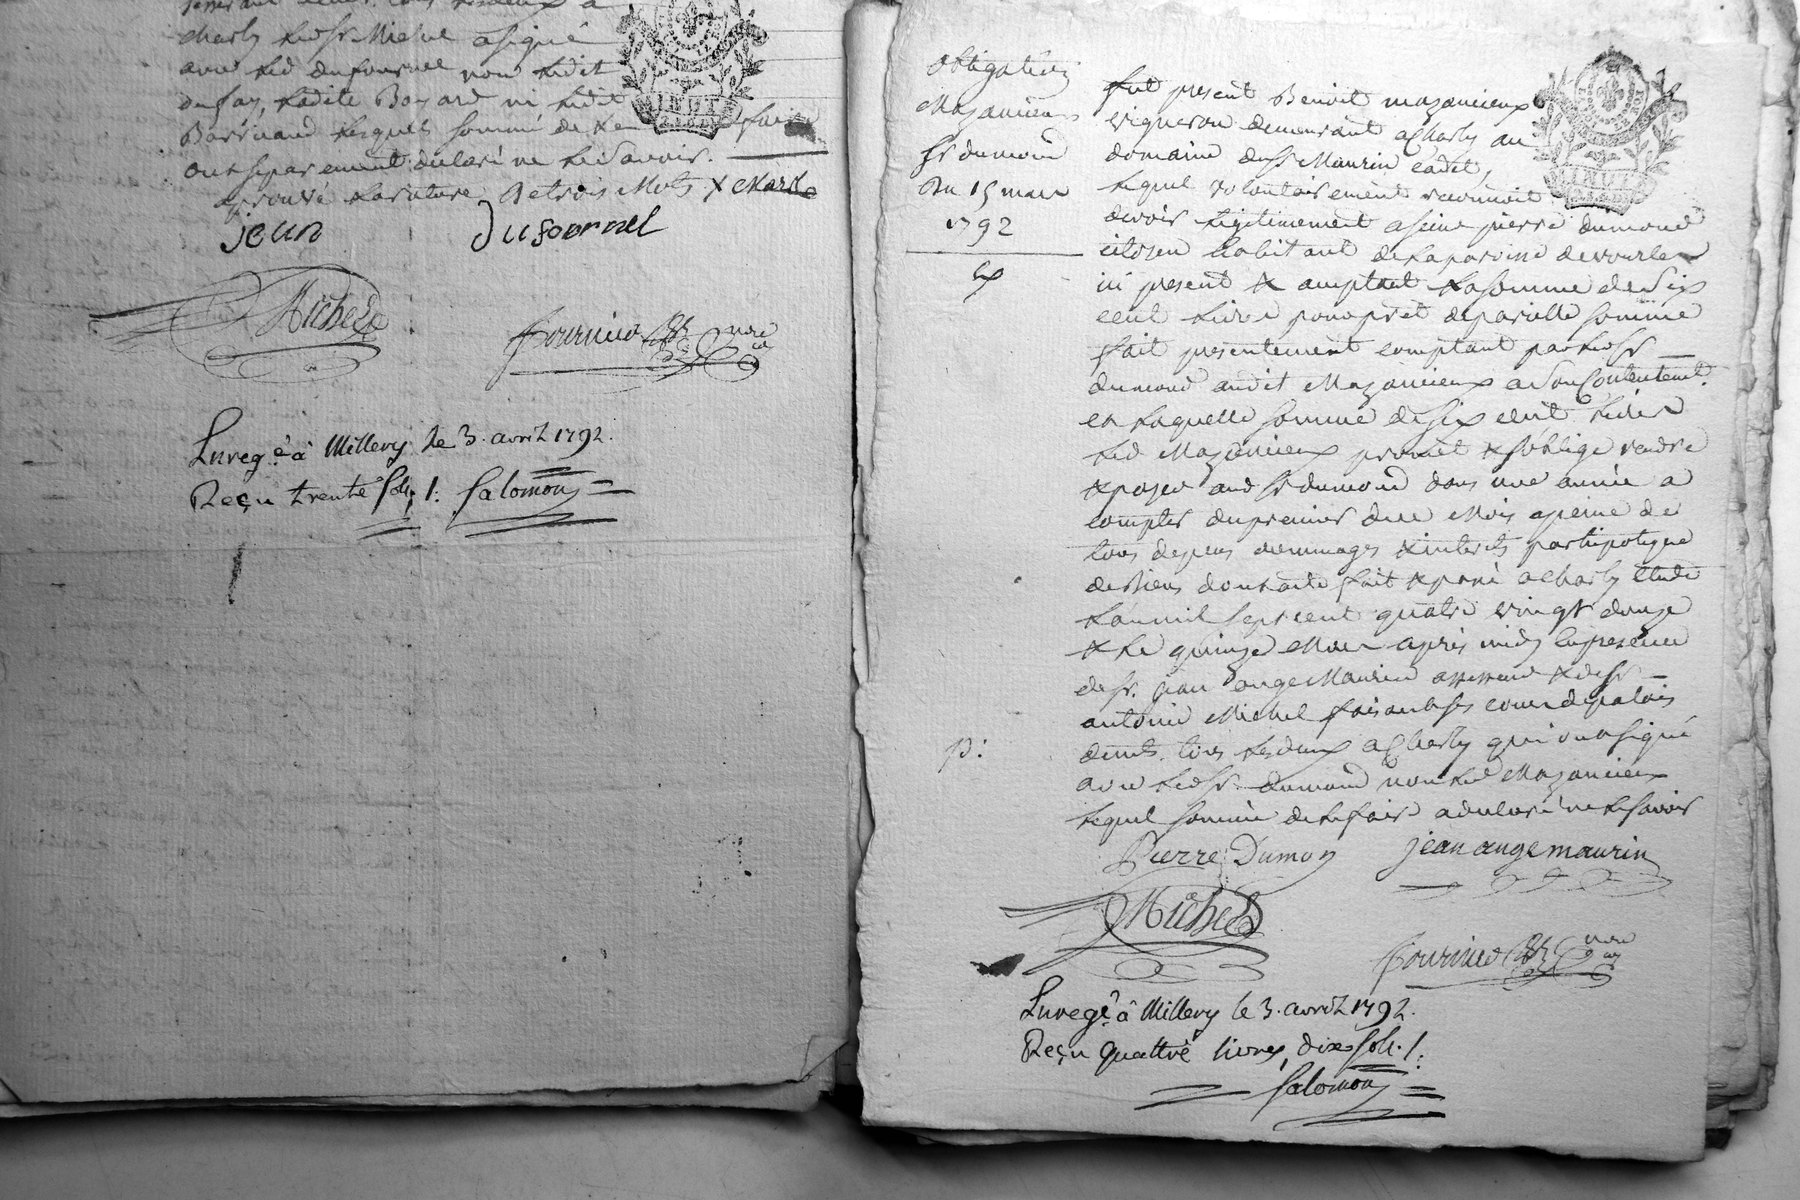 charly ledsr Michel a signé
avec led dufournel non ledit
dufay, ladite Boyard ni ledit
lesquels sommé de le faire
ont separement declaré ne le savoir.
aprouvé la rature De trois Mots X
jean Dufournel
Michel
fournier nore
Enregé à Millery le 3. avril 1792.
Reçu trente sols. /. Salomon
obligation
Mazancieux
Sr dumond
Du 15 mars
1792
fut present Benoit mazancieux
vigneron demeurant a Charly au
domaine du Sr Maurin cadet,
lequel volontairement reconnoit
devoir legitimement a sieur pierre dumond
citoyen habitant de la paroisse de vourles
ici present & acceptant la somme de six
cent livres pour pret de pareille somme
fait presentement comptant par ledsr
dumond audit Mazancieux a son Contentemt.
et laquelle somme de six cent livres
led Mazancieux promet & s'oblige rendre
& payer aud Sr dumond dans une année a
compter du premier du ce Mois a peine de
tous depens dommages & interets par hipoteque
de ses biens dont acte fait & passé a Charly etude
l'an mil sept cent quatre vingt douze
& le quinze Mars après midy en presence
de sr. jean ange Maurin & de sr
antoine Michel faisant es cour de palais
demts. tous les deux a Charly qui ont signé
avec ledsr. dumond non led Mazancieux
lequel sommé de le faire a declaré ne le savoir
p:
Pierre Dumon jean ange maurin
Michel
fournier nore
Enregé à Millery le 3. avril 1792.
Reçu quattre livres, dix sols. /.
Salomon